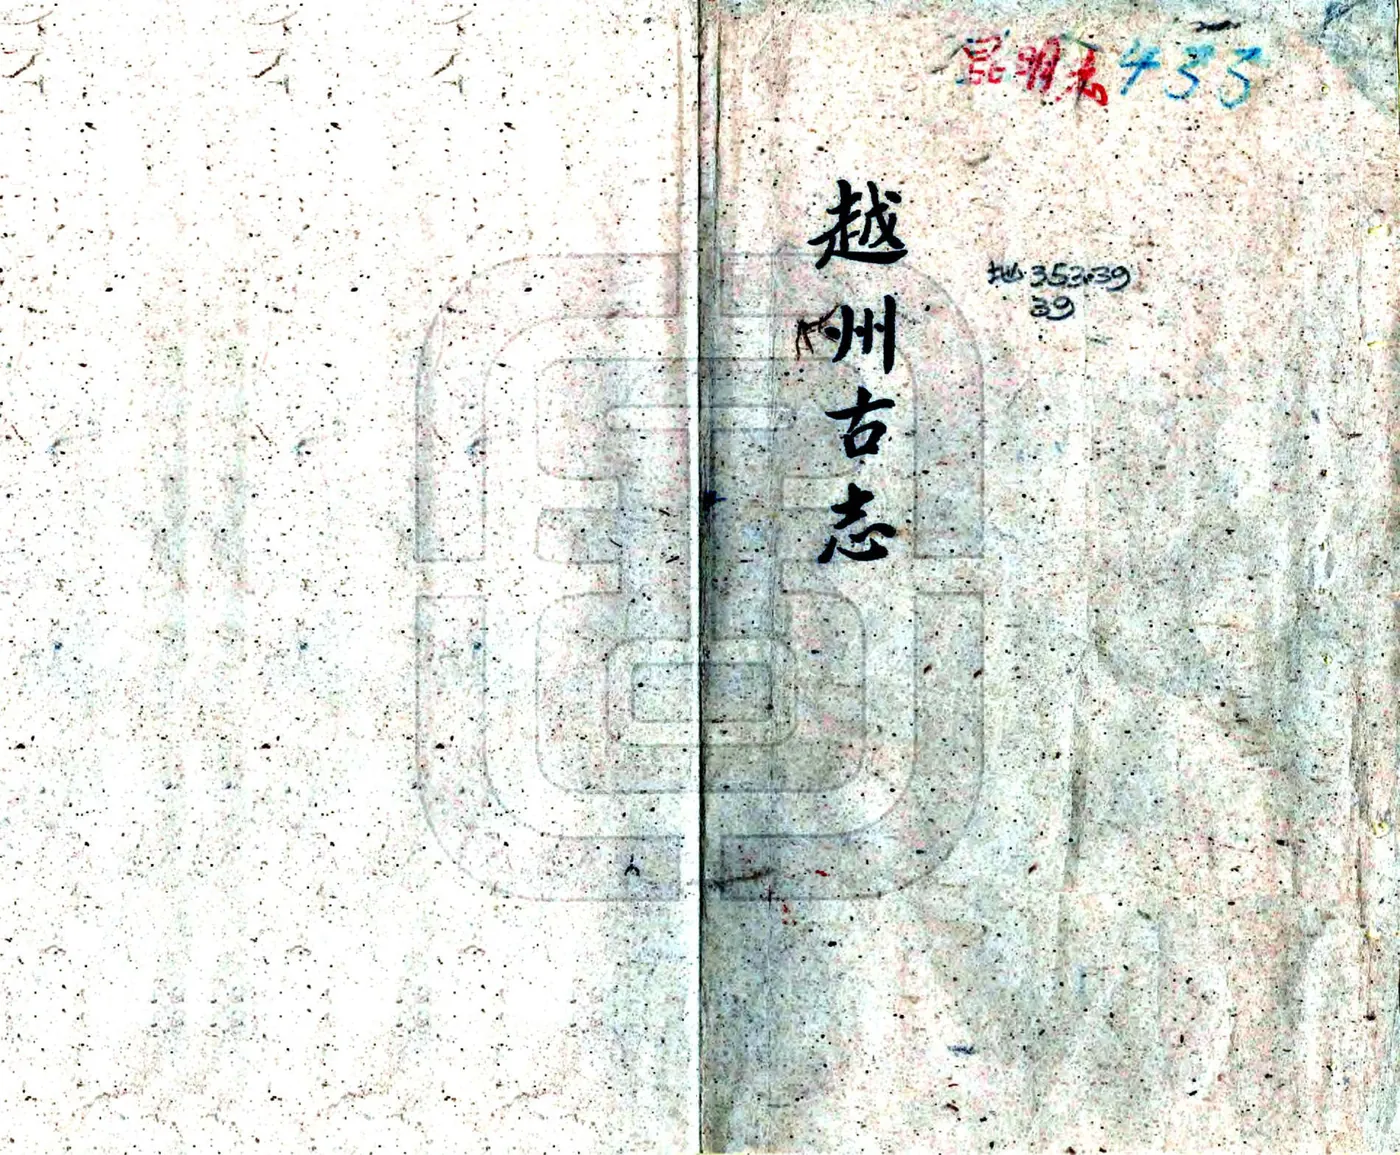 昆明志 433
越州古志
地 353.39
39